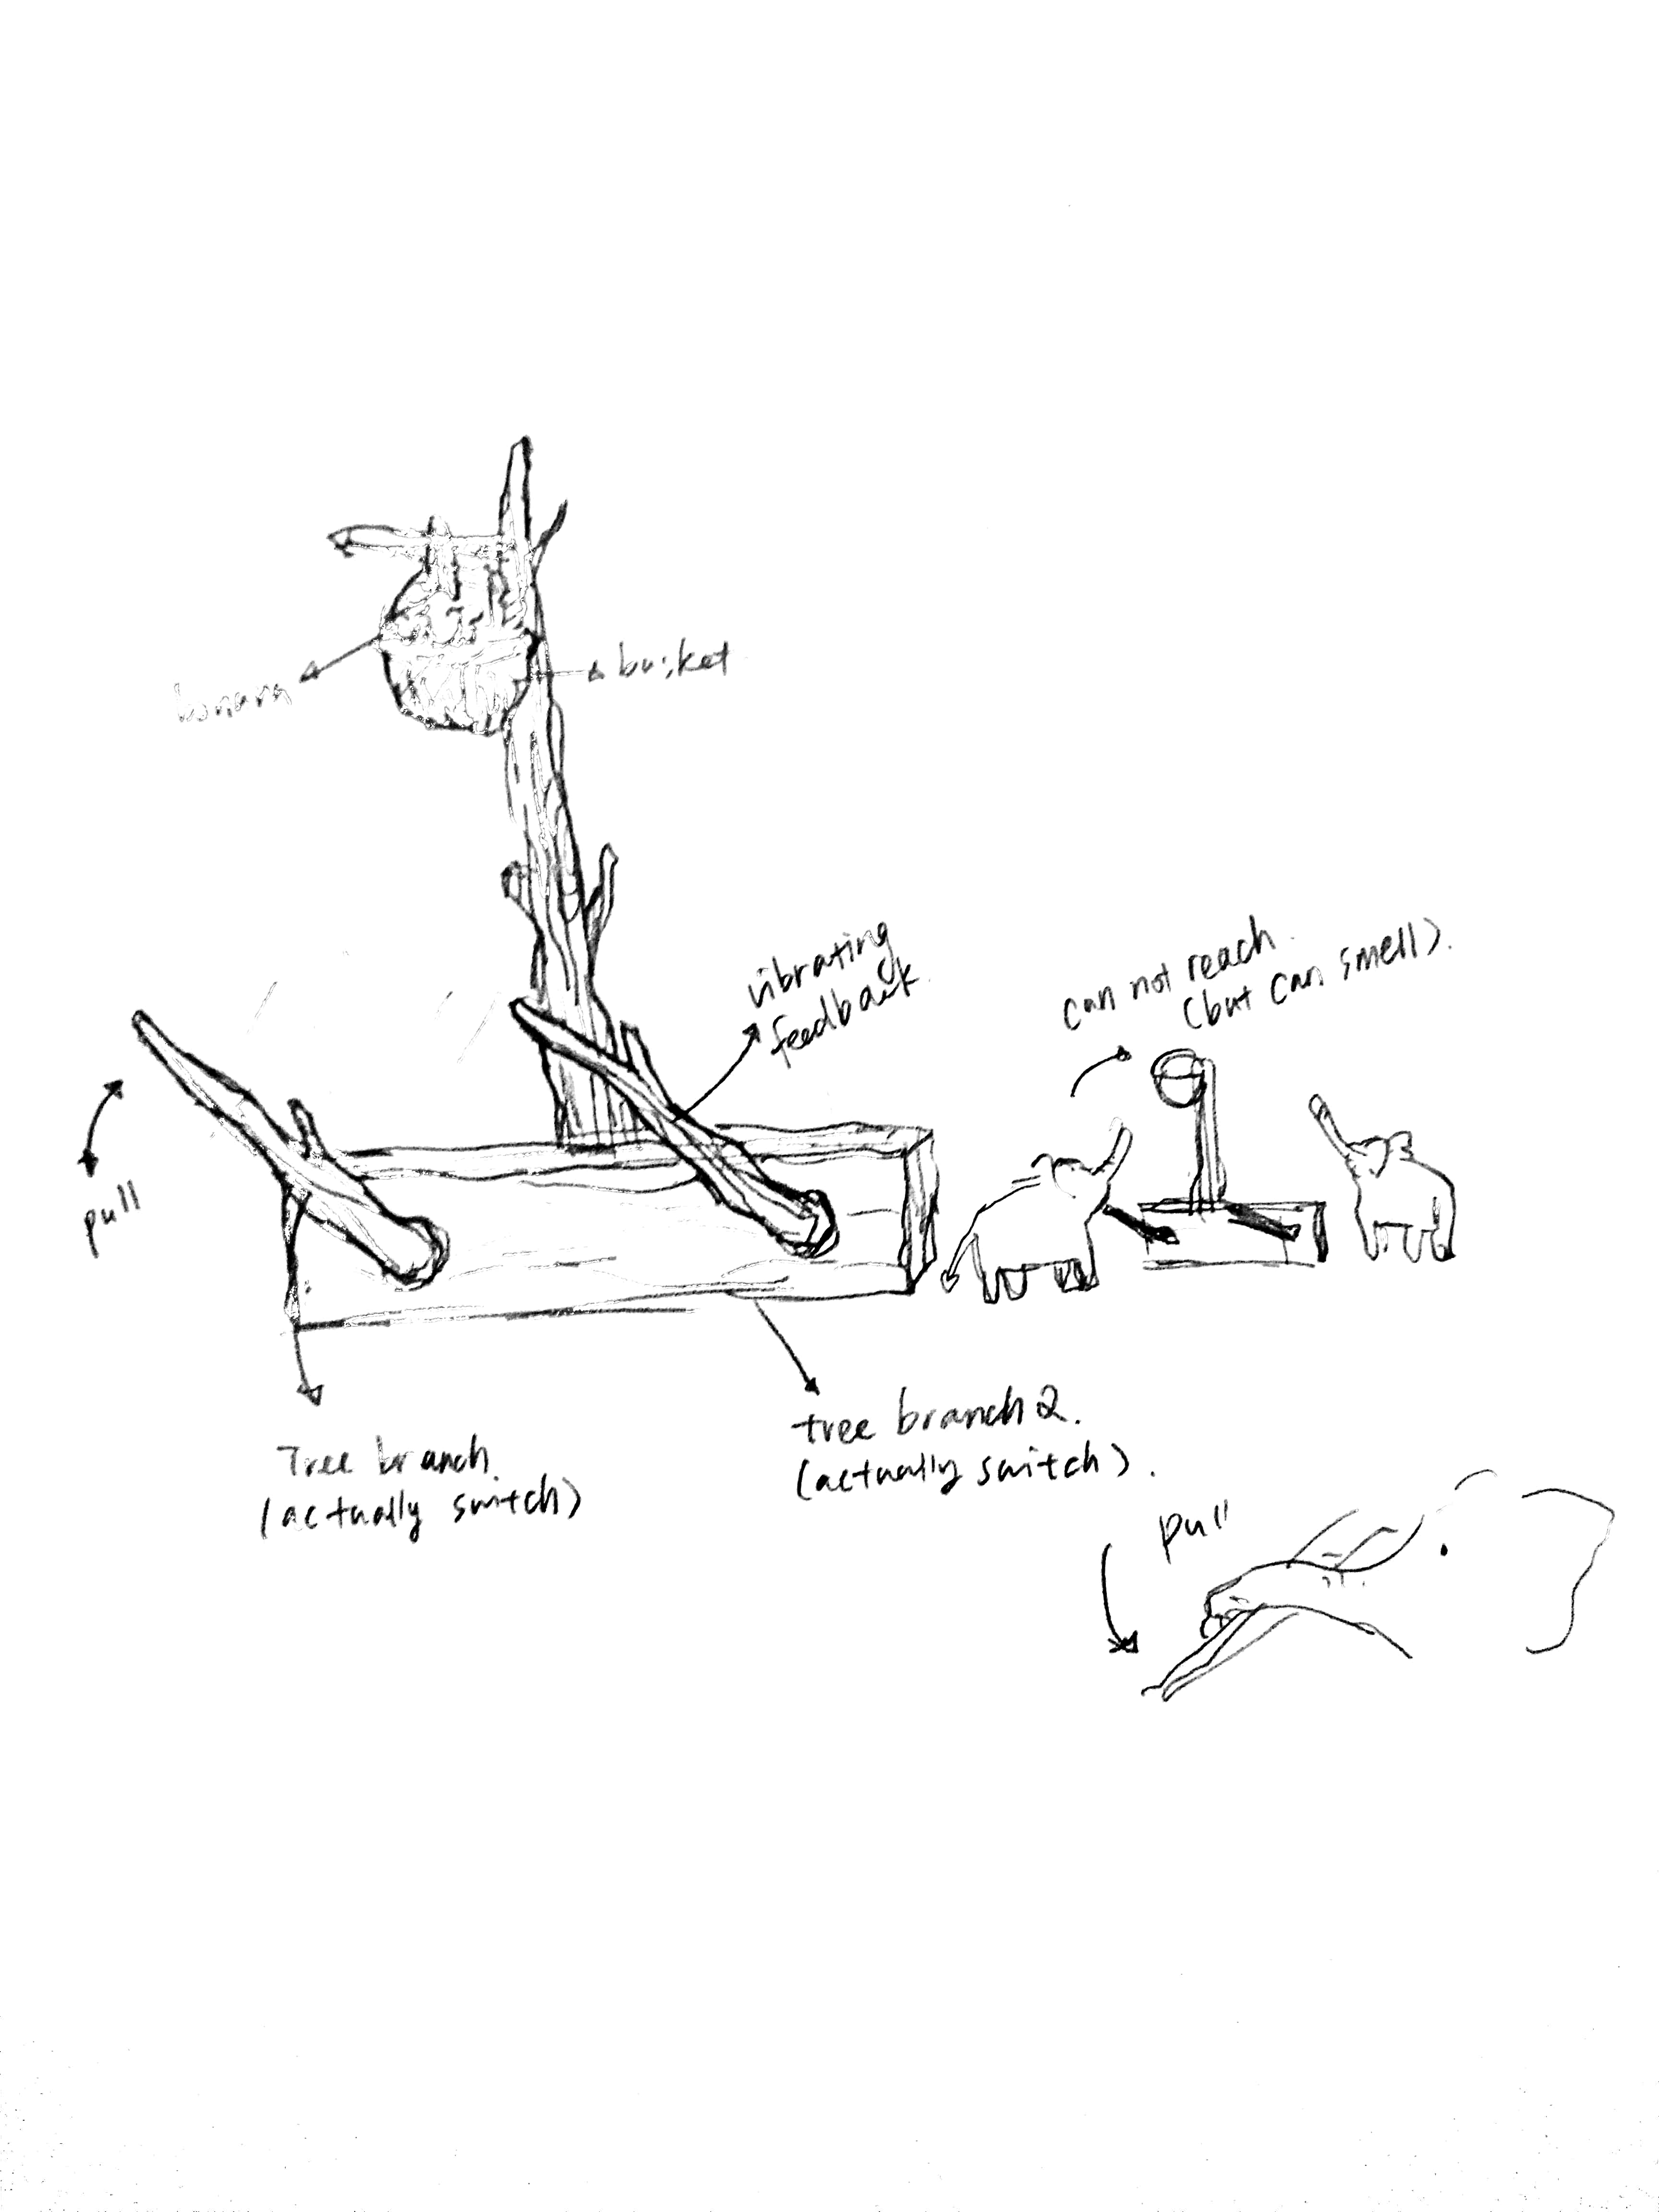 busket
banana
vibrating
feedback.
can not reach.
(but can smell).
pull
Tree branch.
(actually switch)
tree branch 2.
(actually switch).
pull